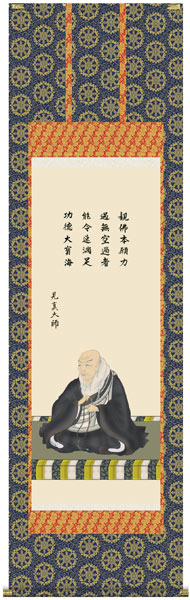 觀佛本願力
遇無空過者
能令速満足
功徳大寶海
見真大師